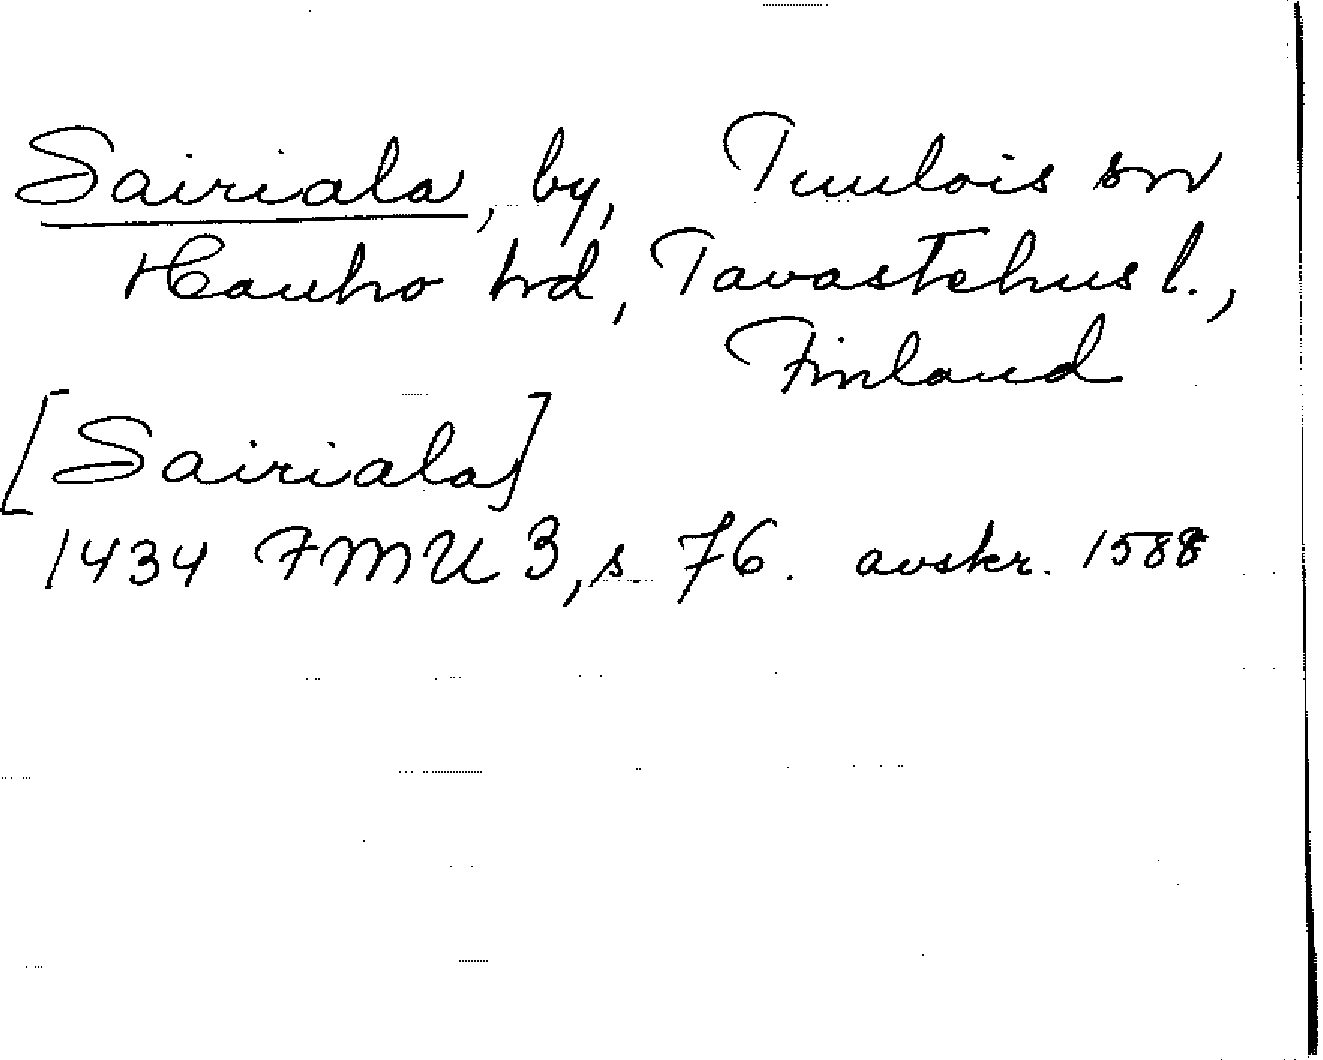 Sairiala, by, Tuulois sn
Hauho hd, Tavastehus l.,
Finland
[Sairiala]
1434 FMU 3, s 76. avskr. 1588